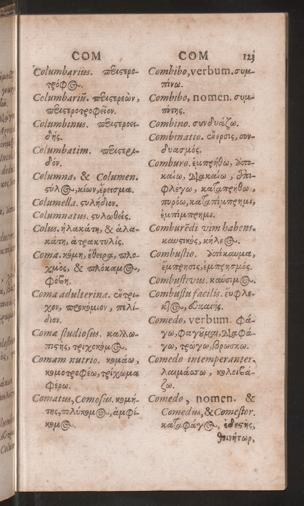 COM
Columbarius. περιστερο-
τρόφος.
Columbariũ. περιστερεών,
περιστεροτροφεῖον.
Columbinus. περιστεροει-
δής.
Columbatim. περιστερη-
δόν.
Columna, & Columen.
στῦλος, κίων, ἔρεισμα.
Columella. στυλίδιον.
Columnatus. στυλωθείς.
Colus. ἠλακάτη, & ἀλα-
κάτη, ἀτρακτυλίς.
Coma. κόμη, ἔθειρα, πλο-
χμὸς, & πλόκαμος,
φόβη.
Coma adulterina.
Coma studiosus. καλλω-
πιστὴς,
Comam nutrio. κομάω,
κομοτροφέω, τρίχωμα
φέρω.
Comatus, Comosus. κομή-
της, πολύκομος, ἀμφί-
κομος.
COM 123
Combibo, verbum. συμ-
πίνω.
Combibo, nomen. συμ-
πότης.
Combino. συνδυάζω.
Combinatio. συν-
δυασμός.
Comburo. ἐμπρήθω,
καίω, κατακαίω, ἐπι-
φλέγω, καταπρήθω,
πυρόω, καταπίμπρημι,
ἐμπίμπρημι.
Comburẽdi vim habens.
καυστικὸς, κήλεος.
Combustio. ὑπέκκαυμα,
ἔμπρησις, ἐμπρησμός.
Combustivus. καύσιμος.
Combustu facilis. εὔφλε-
κτος,
Comedo, verbum. φά-
γω, φαγῆμι, διαφά-
γω, τρώγω, βρώσκω.
Comedo intemperanter.
λαιμάσσω,
ζω.
Comedo, nomen. &
Comedus, & Comestor.
καταφαγᾶς, ἐδεστὴς,